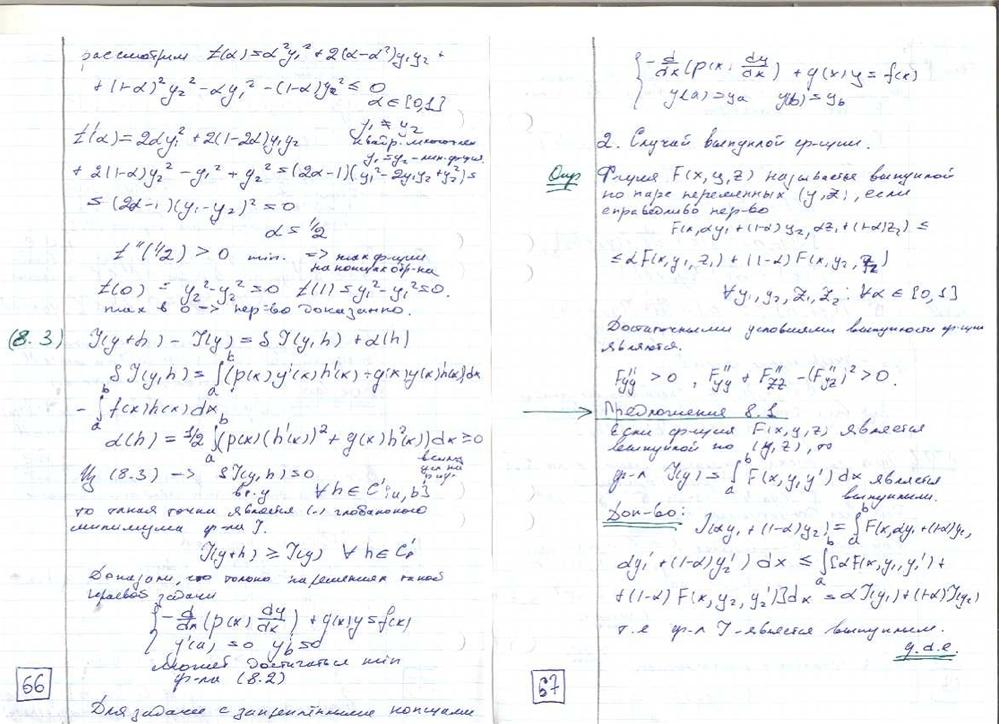 рассмотрим t(α) = α²y₁² + 2(α-α²)y₁y₂ +
+ (1-α)²y₂² - αy₁² - (1-α)y₂² ≤ 0
α∈[0,1]
y₁ ≠ y₂
t'(α) = 2αy₁² + 2(1-2α)y₁y₂
y₁ = y₂ -
+ 2(1-α)y₂² - y₁² + y₂² = (2α-1)(y₁² - 2y₁y₂ + y₂²) =
= (2α-1)(y₁-y₂)² = 0
α = 1/2
t''(1/2) > 0 min. => max ф-ции
на концах отр-ка
t(0) = y₂² - y₂² = 0 t(1) = y₁² - y₁² = 0.
max в 0 => нер-во доказанно.
(8.3) J(y+h) - J(y) = δJ(y,h) + α(h)
δJ(y,h) = ∫ₐᵇ (p(x)y'(x)h'(x) + g(x)y(x)h(x))dx
- ∫ₐᵇ f(x)h(x)dx
α(h) = 1/2 ∫ₐᵇ (p(x)(h'(x))² + g(x)h²(x))dx ≥ 0
Из (8.3) -> δJ(y,h) = 0
∀h∈C'[a,b]
то такая точка является глобального
минимума ф-ла J.
J(y+h) ≥ J(y) ∀h∈C'
Доказали, что только на решениях такой
краевой задачи
{ -d/dx (p(x) dy/dx) + g(x)y = f(x)
y'(a) = 0 y'b = 0
может достигаться min
ф-ла (8.2)
66
Для задачи с закреплёнными концами
{ -d/dx (p(x) dy/dx) + g(x)y = f(x)
y(a) = yₐ y(b) = y_b
2. Случай выпуклой ф-ции.
Опр Ф-ция F(x,y,z) называется выпуклой
по паре переменных (y,z), если
справедливо нер-во
F(x, αy₁ + (1-α)y₂, αz₁ + (1-α)z₂) ≤
≤ αF(x,y₁,z₁) + (1-α)F(x,y₂,z₂)
∀y₁,y₂,z₁,z₂; ∀α∈[0,1]
Достаточными условиями выпуклости ф-ции
являются.
F''yy > 0, F''yy + F''zz - (F''yz)² > 0.
Предложения 8.1
Если ф-ция F(x,y,z) является
выпуклой по (y,z), то
ф-л J(y) = ∫ₐᵇ F(x,y,y')dx является
выпуклым.
Док-во:
J(αy₁ + (1-α)y₂) = ∫ₐᵇ F(x, αy₁ + (1-α)y₂,
αy₁' + (1-α)y₂') dx ≤ ∫ₐᵇ [αF(x,y₁,y₁') +
+ (1-α)F(x,y₂,y₂')]dx = αJ(y₁) + (1-α)J(y₂)
т.е ф-л J - является выпуклым.
q.d.e.
67